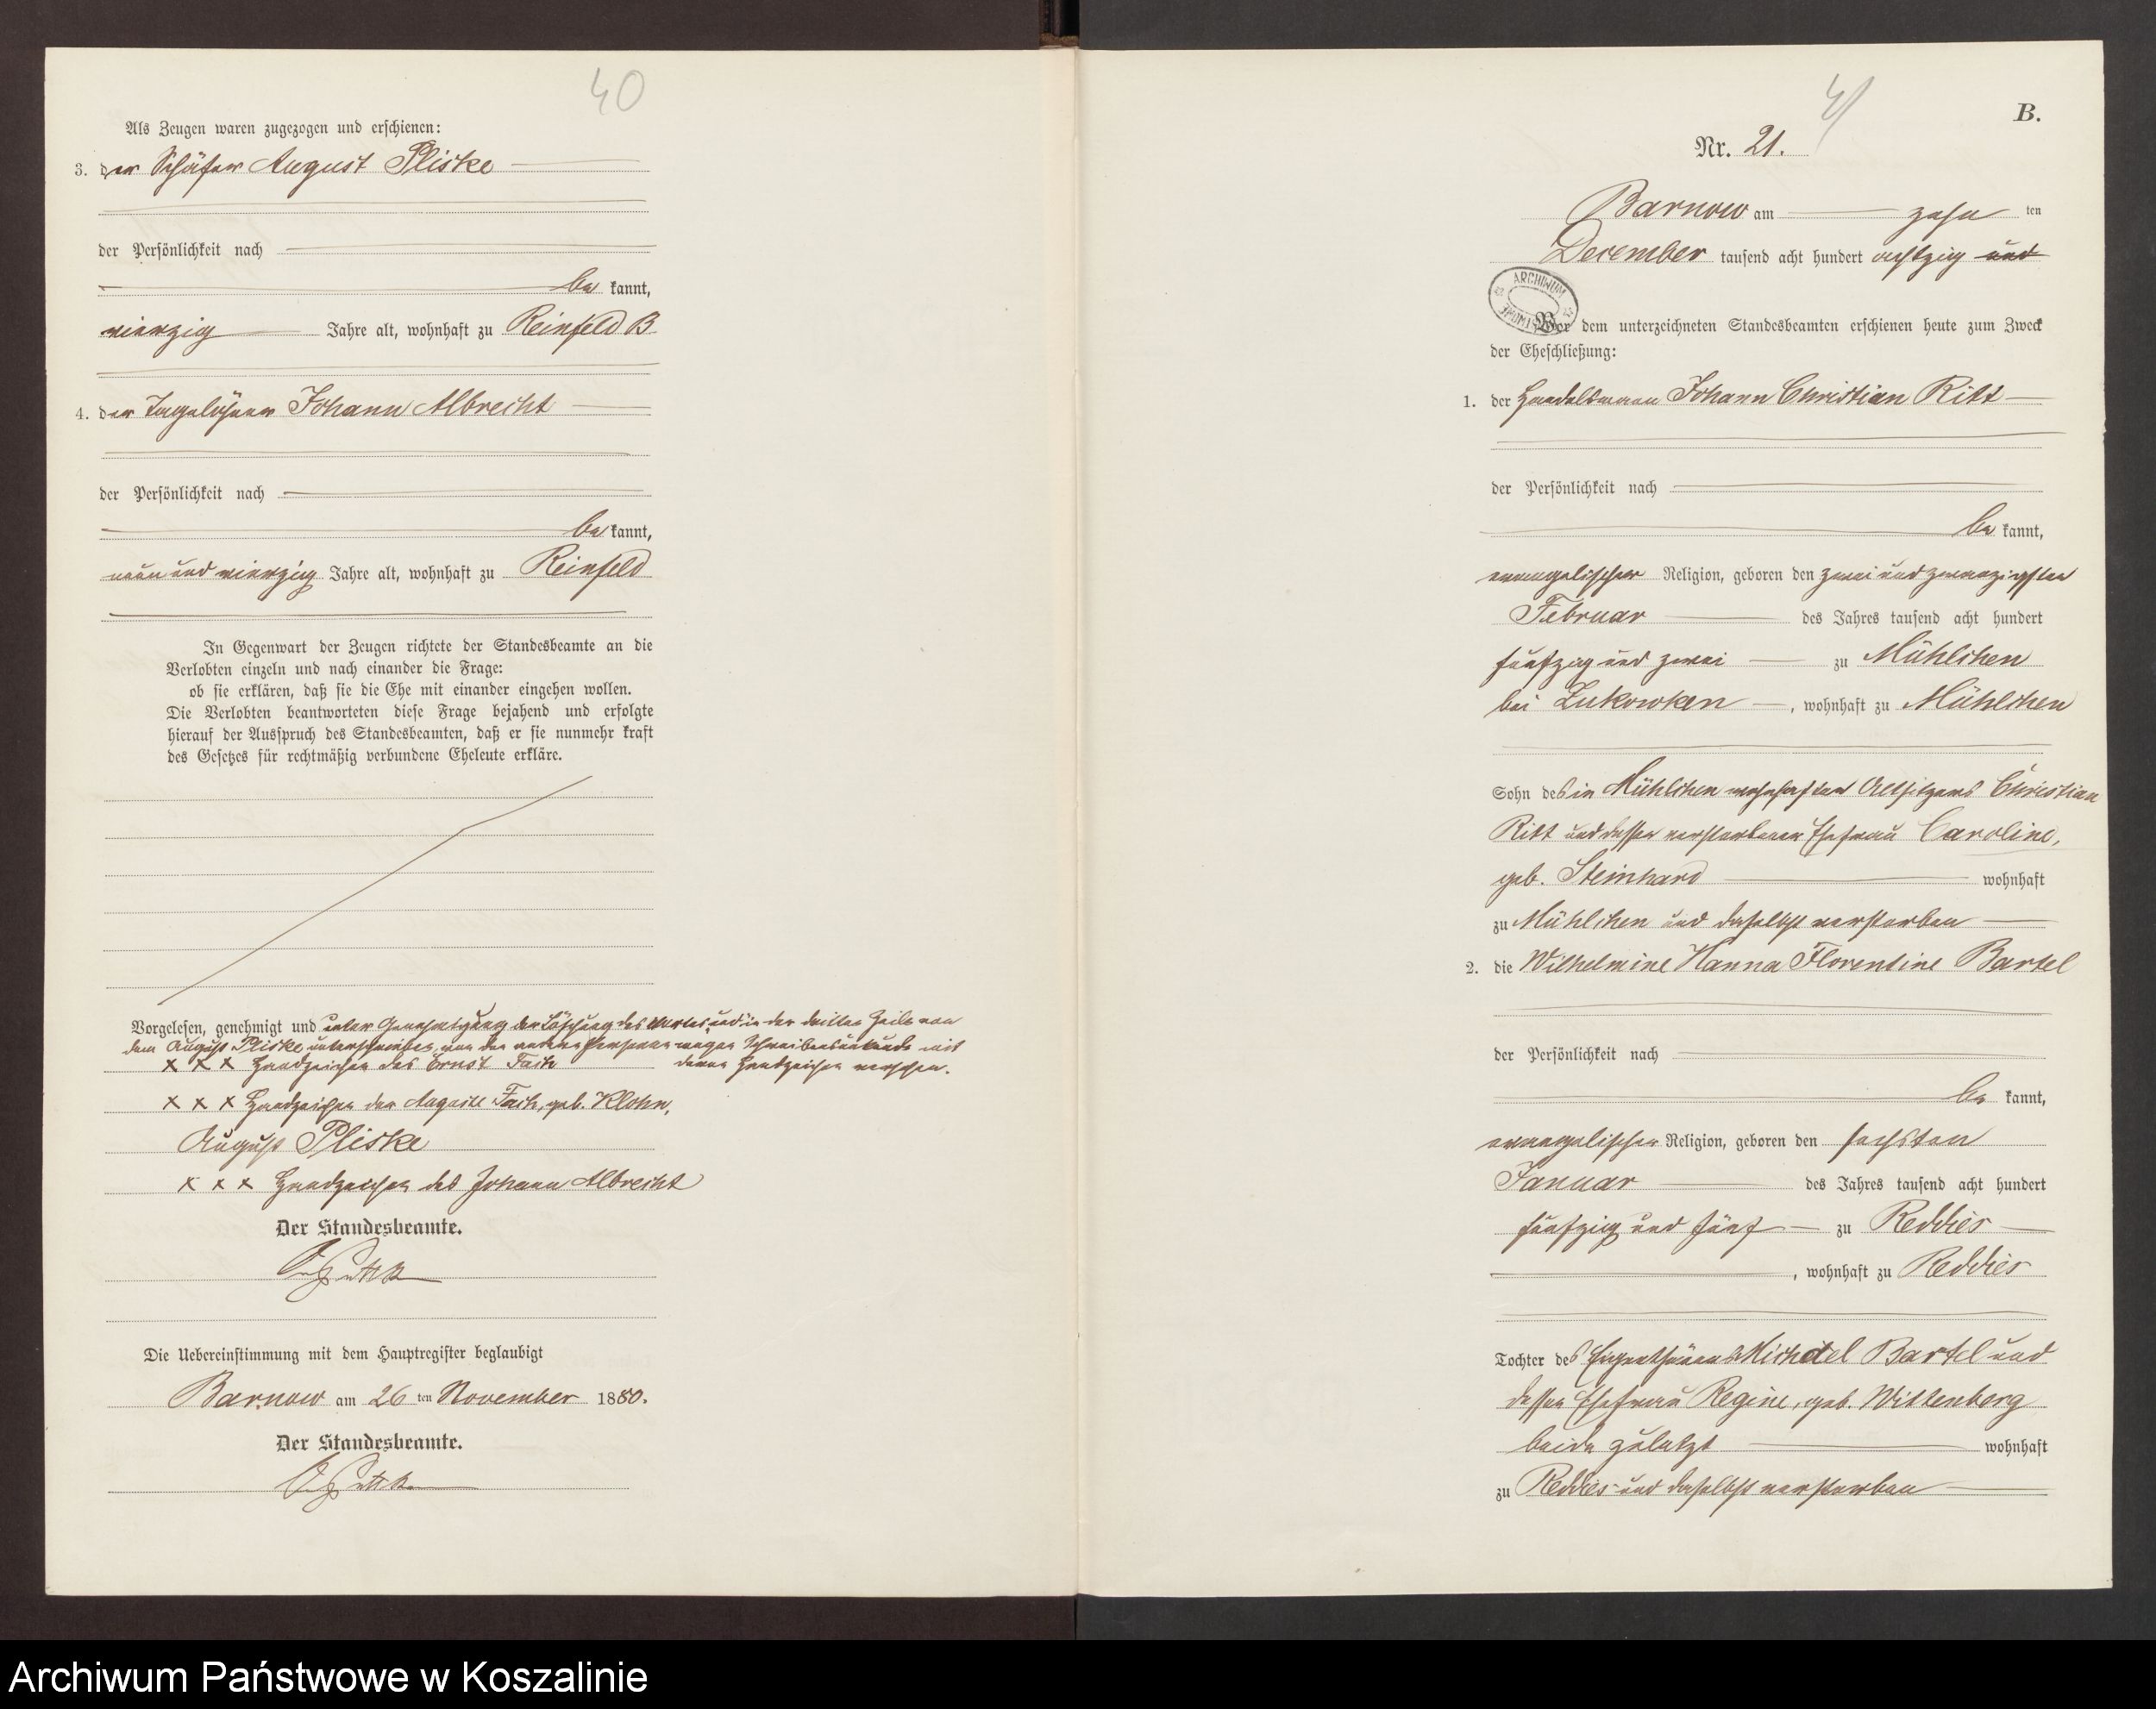 40
Als Zeugen waren zugezogen und erschienen:
3. der Schäfer August Pliske
der Persönlichkeit nach
be kannt,
vierzig Jahre alt, wohnhaft zu Reinfeld B
4. der Tagelöhner Johann Albrecht
der Persönlichkeit nach
be kannt,
neun und vierzig Jahre alt, wohnhaft zu Reinfeld
In Gegenwart der Zeugen richtete der Standesbeamte an die
Verlobten einzeln und nach einander die Frage:
ob sie erklären, daß sie die Ehe mit einander eingehen wollen.
Die Verlobten beantworteten diese Frage bejahend und erfolgte
hierauf der Ausspruch des Standesbeamten, daß er sie nunmehr kraft
des Gesetzes für rechtmäßig verbundene Eheleute erkläre.
Vorgelesen, genehmigt und unter Genehmigung der Löschung des Wortes „und“ in der dritten Zeile von
dem August Pliske unterschrieben, von den anderen Personen wegen Schreibensunkunde mit
deren Handzeichen versehen.
x x x Handzeichen des Ernst Fach
x x x Handzeichen der Auguste Fach, geb. Klohn,
August Pliske
x x x Handzeichen des Johann Albrecht
Der Standesbeamte.
Die Uebereinstimmung mit dem Hauptregister beglaubigt
Barnow am 26 ten November 1880.
Der Standesbeamte.
41
B.
Nr. 21.
Barnow am zehn ten
December tausend acht hundert achtzig und
ARCHIWUM
Vor dem unterzeichneten Standesbeamten erschienen heute zum Zweck
der Eheschließung:
1. der Handelsmann Johann Christian Ritt
der Persönlichkeit nach
be kannt,
evangelischer Religion, geboren den zwei und zwanzigsten
Februar des Jahres tausend acht hundert
fünfzig und zwei zu Mühlchen
bei Zukowken, wohnhaft zu Mühlchen
Sohn des in Mühlchen wohnhaften Altsitzers Christian
Ritt und dessen verstorbenen Ehefrau Caroline,
geb. Steinhard wohnhaft
zu Mühlchen und daselbst verstorben
2. die Wilhelmine Hanna Florentine Bartel
der Persönlichkeit nach
be kannt,
evangelischer Religion, geboren den sechsten
Januar des Jahres tausend acht hundert
fünfzig und fünf zu Reddies
, wohnhaft zu Reddies
Tochter des Eigenthümers Michael Bartel und
dessen Ehefrau Regine, geb. Wittenberg
beide zuletzt wohnhaft
zu Reddies und daselbst verstorben
Archiwum Państwowe w Koszalinie